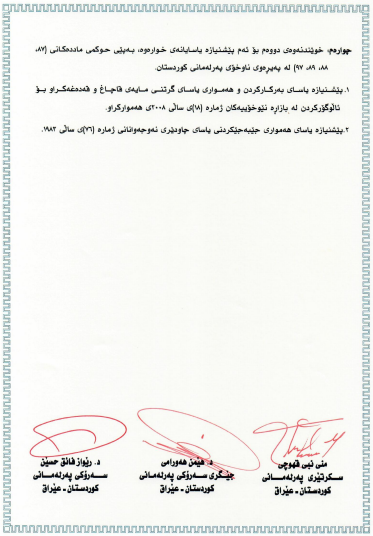 چوارەم: خوێندنەوەی دووەم بۆ ئەم پێشنیازە یاسایانەی خوارەوە، بەپێی حوکمی ماددەکانی (٨٧،
٨٨، ٨٩، ٩٧) لە پەیڕەوی ناوخۆی پەرلەمانی کوردستان.
١. پێشنیازە یاسای بەرکارکردن و هەمواری یاسای گرتنی مایەی قاچاغ و قەدەغەکراو بۆ
ئاڵوگۆڕکردن لە بازاڕە نێوخۆییەکان ژمارە (١٨)ی ساڵی ٢٠٠٨ی هەموارکراو.
٢. پێشنیازە یاسای هەمواری جێبەجێکردنی یاسای چاودێری نەوجەوانانی ژمارە (٧٦)ی ساڵی ١٩٨٣.
د. رێواز فائق حسێن
سەرۆکی پەرلەمانی
کوردستان - عێراق
د. هێمن هەورامی
جێگری سەرۆکی پەرلەمانی
کوردستان - عێراق
منی نبی قهوچی
سکرتێری پەرلەمانی
کوردستان - عێراق